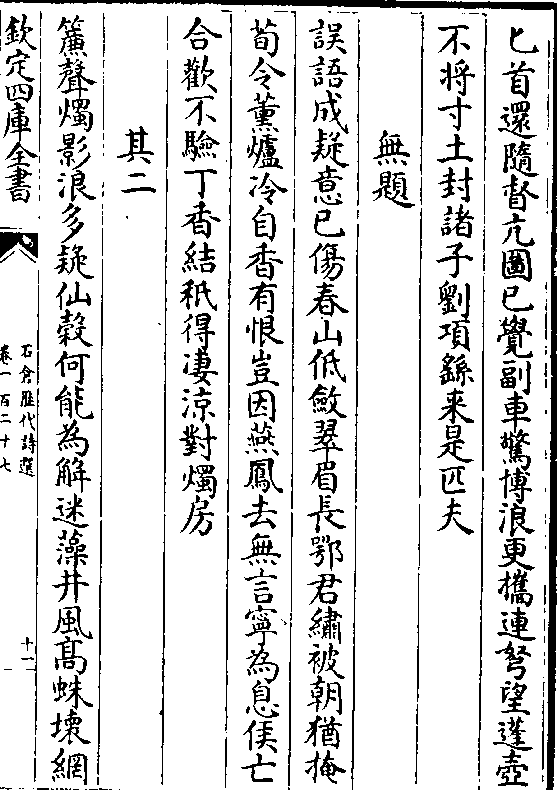 匕首還隨督亢圖已覺副車驚博浪更攜連弩望蓬壺
不將寸土封諸子劉項繇来是匹夫
無題
誤語成疑意已傷春山低斂翠眉長鄂君繡被朝猶掩
荀令薰爐冷自香有恨豈因燕鳳去無言寧為息侯亡
合歡不驗丁香結秖得凄涼對燭房
其二
簾聲燭影浪多疑仙縠何能為解迷藻井風髙蛛壞網
欽定四庫全書
石倉歴代詩選
卷一百二十七
十一